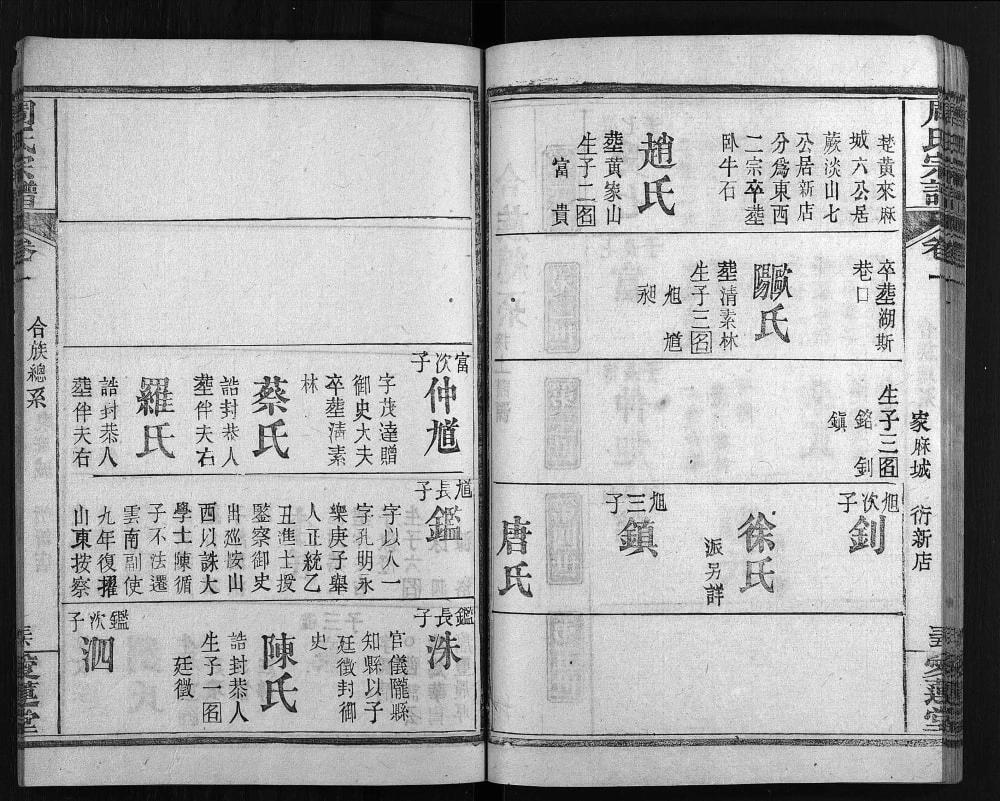 周氏宗譜
卷一
家麻城
衍新店
愛蓮堂
楚黃來麻
城六公居
蕨淡山七
公居新店
分爲東西
二宗卒塟
臥牛石
趙氏
塟黃家山
生子二名
富
貴
卒塟湖斯
巷口
歐氏
塟清素林
生子三名
旭
馗
昶
生子三名
銘
釗
鎭
旭次子
釗
徐氏
派另詳
旭三子
鎭
唐氏
富次子
仲馗
字茂達贈
御史大夫
卒塟淸素
林
蔡氏
誥封恭人
塟伴夫右
羅氏
誥封恭人
塟伴夫右
馗長子
鑑
字以人一
字孔明永
樂庚子舉
人正統乙
丑進士授
監察御史
出巡按山
西以誅大
學士陳循
子不法遷
雲南副使
九年復擢
山東按察
鑑長子
洙
官儀隴縣
知縣以子
廷徵封御
史
陳氏
誥封恭人
生子一名
廷徵
鑑次子
泗
周氏宗譜
卷一
合族總系
愛蓮堂